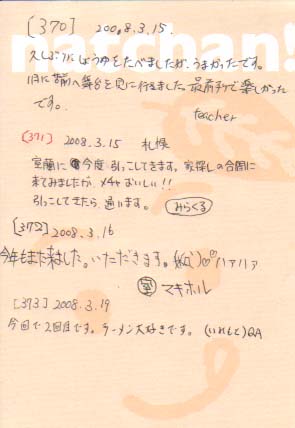 [370] 2008.3.15.
machan!
久しぶりにしょうゆをたべましたが、うまかったです。
11月に苫前へ舞台を見に行きました。最前列で楽しかった
です。
teacher
[371] 2008.3.15 札幌
室蘭に今度引っこしてきます。家探しの合間に
来てみましたが、メチャおいしい!!
引っこしてきたら、通います。 みらくる
[372] 2008.3.16
今年もまた来ました。いただきます。(*´Д`)♡♡ハァハァ
室 マキホル
[373] 2008.3.19
今回で2回目です。ラーメン大好きです。(いれもと)QA